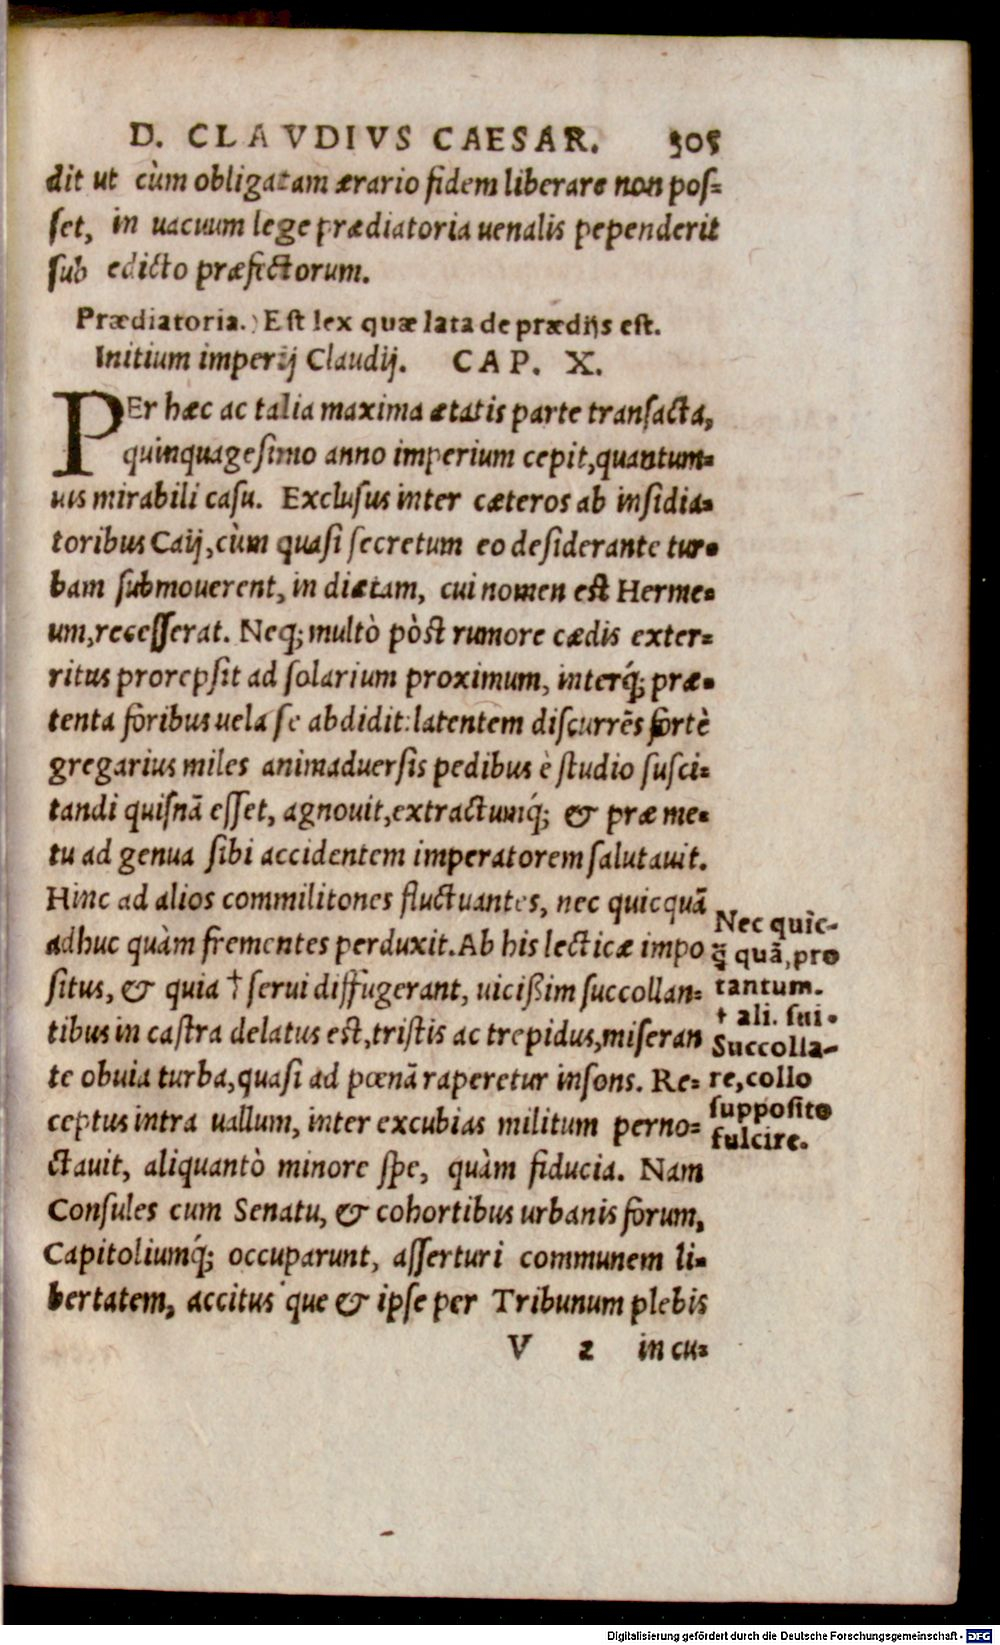 D. CLAVDIVS CAESAR. 305
dit ut cùm obligatam ærario fidem liberare non pos-
set, in uacuum lege prædiatoria uenalis pependerit
sub edicto præfectorum.
Prædiatoria.) Est lex quæ lata de prædijs est.
Initium imperij Claudij. CAP. X.
PEr hæc ac talia maxima ætatis parte transacta,
quinquagesimo anno imperium cepit, quantum-
uis mirabili casu. Exclusus inter cæteros ab insidia-
toribus Caij, cùm quasi secretum eo desiderante tur-
bam submouerent, in diætam, cui nomen est Herme-
um, recesserat. Neq; multò pòst rumore cædis exter-
ritus prorepsit ad solarium proximum, interq́; præ-
tenta foribus uela se abdidit: latentem discurrēs fortè
gregarius miles animaduersis pedibus è studio susci-
tandi quisnā esset, agnouit, extractumq́; & præ me-
tu ad genua sibi accidentem imperatorem salutauit.
Hinc ad alios commilitones fluctuantes, nec quicquā
adhuc quàm frementes perduxit. Ab his lecticæ impo
situs, & quia † serui diffugerant, uicißim succollan-
tibus in castra delatus est, tristis ac trepidus, miseran
te obuia turba, quasi ad pœnā raperetur insons. Re-
ceptus intra uallum, inter excubias militum perno-
ctauit, aliquantò minore spe, quàm fiducia. Nam
Consules cum Senatu, & cohortibus urbanis forum,
Capitoliumq́; occuparunt, asserturi communem li-
bertatem, accitusque & ipse per Tribunum plebis
V 2 in cu-
Nec quic-
q̄ quā, pro
tantum.
† ali. sui-
Succolla-
re, collo
supposito
fulcire.
Digitalisierung gefördert durch die Deutsche Forschungsgemeinschaft - DFG